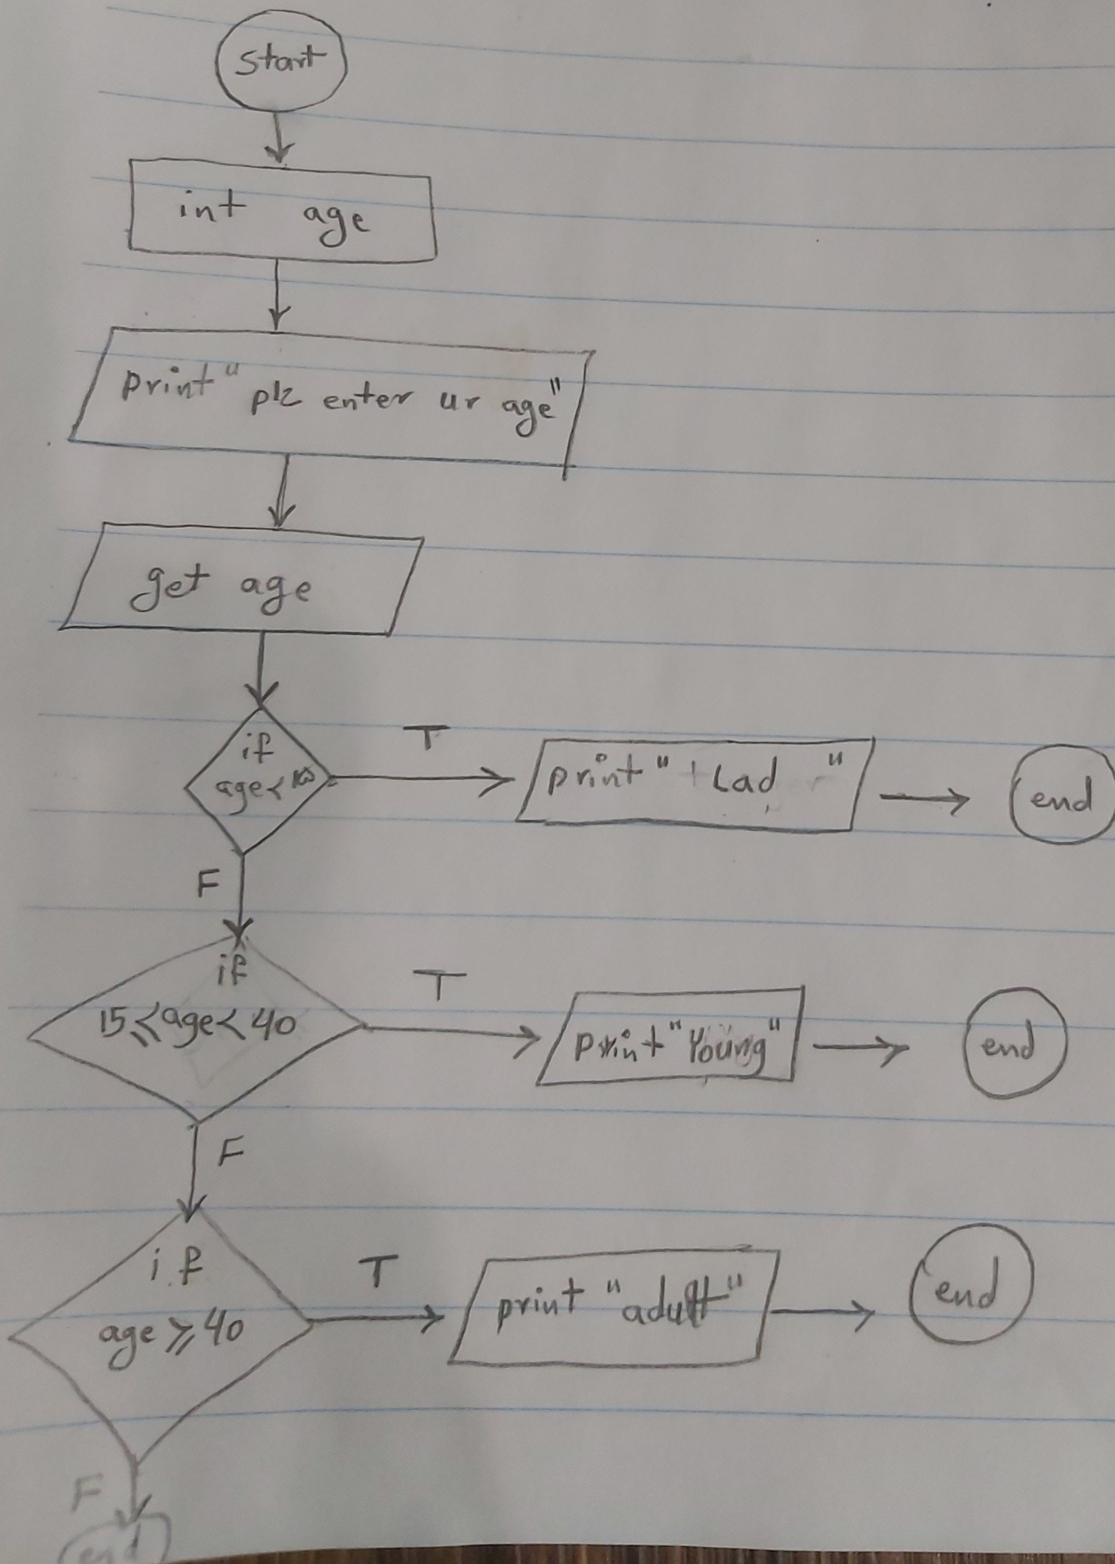 Start
int age
print "plz enter ur age"
get age
if
age<
T
print " Lad "
end
F
if
15≤age<40
T
print "Young"
end
F
if
age ≥ 40
T
print "adult"
end
F
end